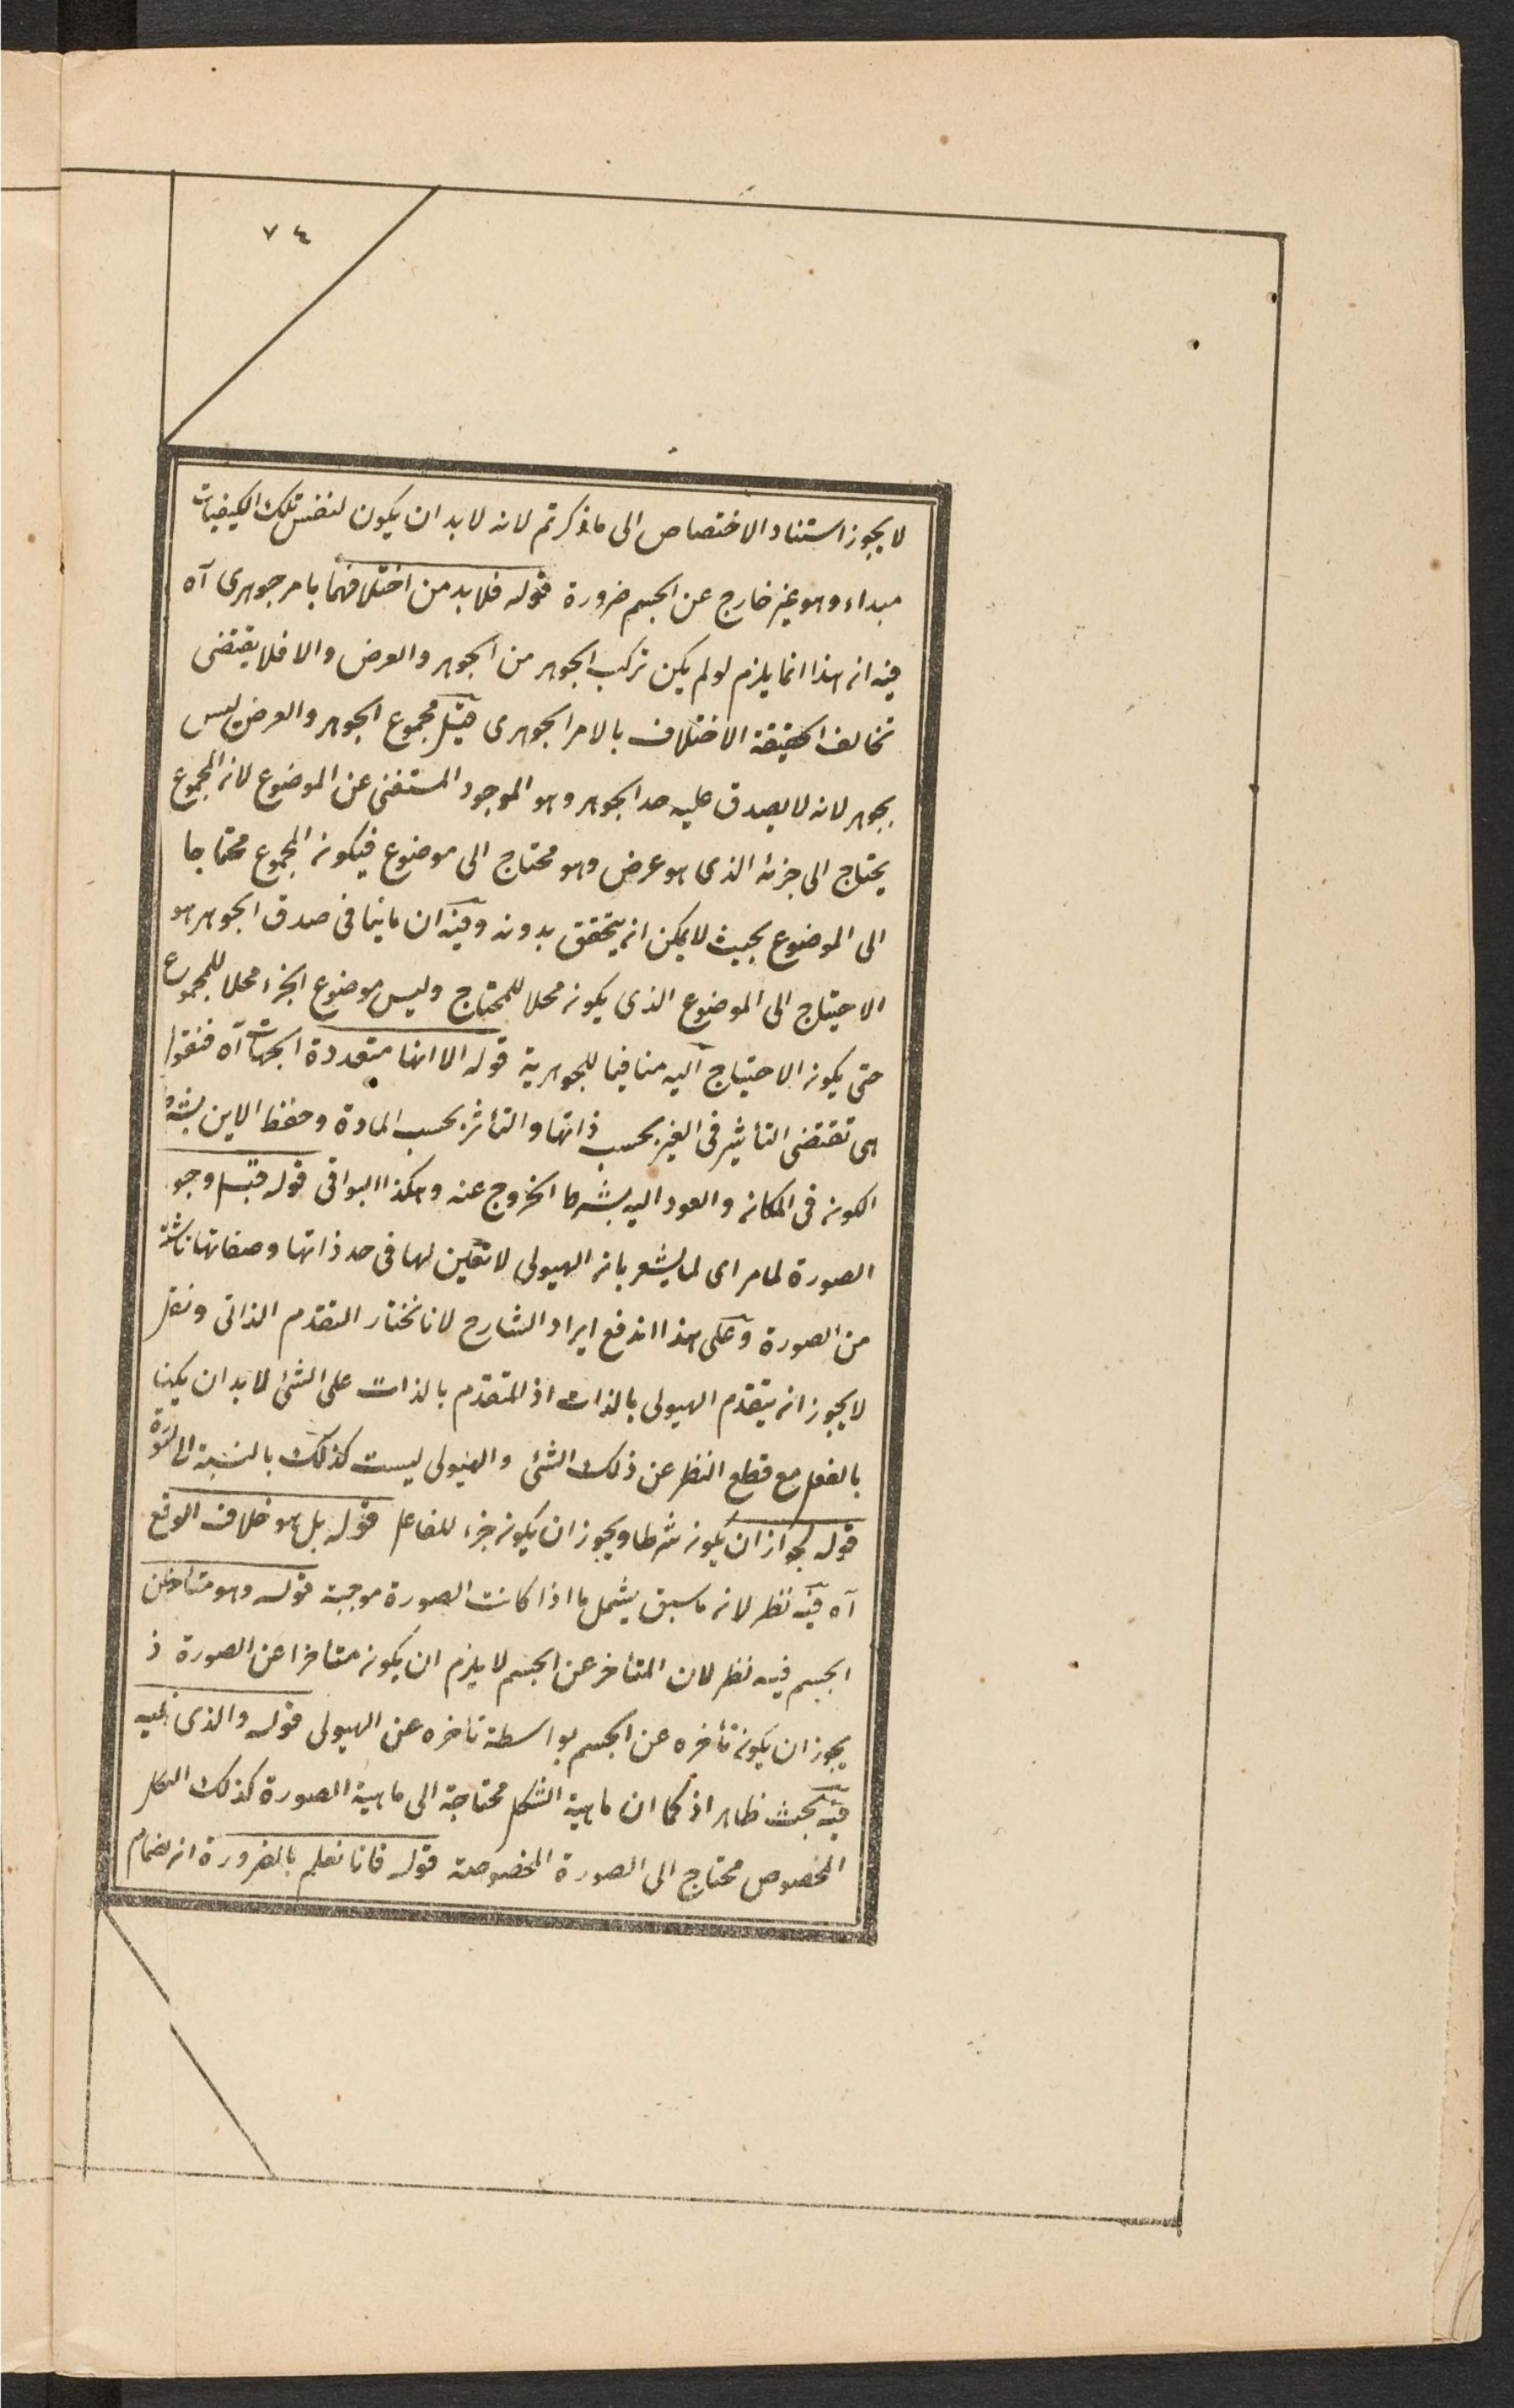 ٧٤
لا يجوز استناد الاختصاص الى ما ذكرتم لانه لا بد ان يكون لنفس تلك الكيفيات
مبداء وهو غير خارج عن الجسم ضرورة قوله فلا بد من اختلافهما بامر جوهرى آه
فيه ان هذا انما يلزم لو لم يكن تركب الجوهر من الجوهر والعرض والا فلا يقتضى
تخالف الحقيقة الاختلاف بالامر الجوهرى قيل مجموع الجوهر والعرض ليس
بجوهر لانه لا يصدق عليه حد الجوهر وهو الموجود المستغنى عن الموضوع لان المجموع
يحتاج الى جزئه الذى هو عرض وهو محتاج الى موضوع فيكون المجموع محتاجا
الى الموضوع بحيث لا يمكن ان يتحقق بدونه وفيه ان ما ينافى صدق الجوهر هو
الاحتياج الى الموضوع الذى يكون محلا للمحتاج وليس موضوع الجزء محلا للمجموع
حتى يكون الاحتياج اليه منافيا للجوهرية قوله الا انها متعددة الجهات آه فنقول
هى تقتضى التأثير فى الغير بحسب ذاتها والتأثر بحسب المادة وحفظ الاين بشرط
الكون فى المكان والعود اليه بشرط الخروج عنه وهكذا البواقى قوله قبل وجود
الصورة لما مر اى لما يشعر بان الهيولى لا تعين لها فى حد ذاتها وصفاتها ناشئة
من الصورة وعلى هذا اندفع ايراد الشارح لانا نختار التقدم الذاتى ونقل
لا يجوز ان يتقدم الهيولى بالذات اذ المتقدم بالذات على الشئ لا بد ان يكون
بالفعل مع قطع النظر عن ذلك الشئ والهيولى ليست كذلك بالنسبة الى الصورة
قوله لجواز ان يكون شرطا ويجوز ان يكون جزء للفاعل قوله بل هو خلاف الواقع
آه فيه نظر لان ما سبق يشمل ما اذا كانت الصورة موجبة قوله وهو متأخر عن
الجسم فيه نظر لان المتأخر عن الجسم لا يلزم ان يكون متأخرا عن الصورة ذ
يجوز ان يكون تأخره عن الجسم بواسطة تأخره عن الهيولى قوله والذى
فيه بحث ظاهر اذ كما ان ماهية الشكل محتاجة الى ماهية الصورة كذلك الشكل
المخصوص محتاج الى الصورة المخصوصة قوله فانا نعلم بالضرورة ان انضمام